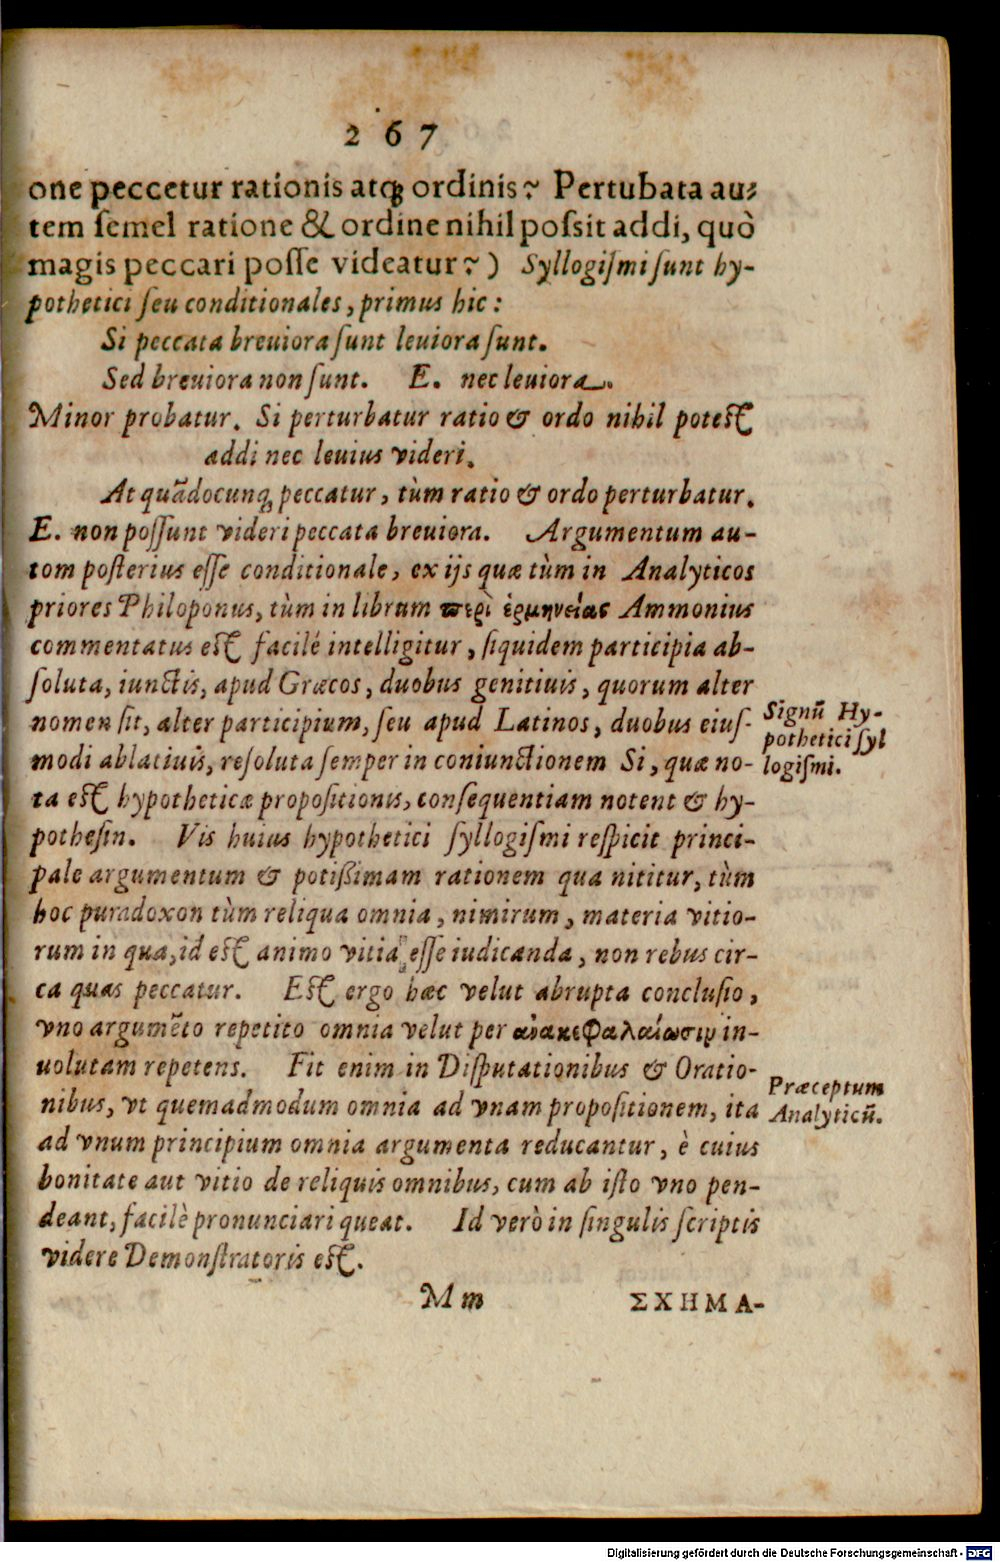 2 6 7
one peccetur rationis atqꝫ ordinis? Pertubata au-
tem ſemel ratione & ordine nihil poſsit addi, quò
magis peccari poſſe videatur?) Syllogiſmi ſunt hy-
pothetici ſeu conditionales, primus hic:
Si peccata breuiora ſunt leuiora ſunt.
Sed breuiora non ſunt. E. nec leuiora.
Minor probatur. Si perturbatur ratio & ordo nihil poteſt
addi nec leuius videri.
At quãdocunqꝫ peccatur, tùm ratio & ordo perturbatur.
E. non poſſunt videri peccata breuiora. Argumentum au-
tom poſterius eſſe conditionale, ex ijs quæ tùm in Analyticos
priores Philoponus, tùm in librum περὶ ἑρμηνείας Ammonius
commentatus eſt facilé intelligitur, ſiquidem participia ab-
ſoluta, iunctis, apud Græcos, duobus genitiuis, quorum alter
nomen ſit, alter participium, ſeu apud Latinos, duobus eiuſ-
modi ablatiuis, reſoluta ſemper in coniunctionem Si, quæ no-
ta eſt hypotheticæ propoſitionis, conſequentiam notent & hy-
potheſin. Vis huius hypothetici ſyllogiſmi reſpicit princi-
pale argumentum & potißimam rationem qua nititur, tùm
hoc paradoxon tùm reliqua omnia, nimirum, materia vitio-
rum in qua, id eſt animo vitia eſſe iudicanda, non rebus cir-
ca quas peccatur. Eſt ergo hæc velut abrupta concluſio,
vno argumẽto repetito omnia velut per ανακεφαλαίωσιν in-
uolutam repetens. Fit enim in Diſputationibus & Oratio-
nibus, vt quemadmodum omnia ad vnam propoſitionem, ita
ad vnum principium omnia argumenta reducantur, è cuius
bonitate aut vitio de reliquis omnibus, cum ab iſto vno pen-
deant, facilè pronunciari queat. Id verò in ſingulis ſcriptis
videre Demonſtratoris eſt.
Signũ Hy-
pothetici ſyl
logiſmi.
Præceptum
Analyticũ.
Mm ΣΧΗΜΑ-
Digitalisierung gefördert durch die Deutsche Forschungsgemeinschaft - DFG